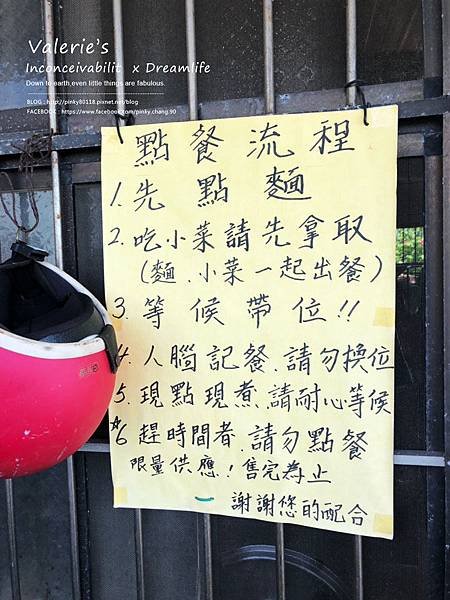 Valerie's
Inconceivabilit x Dreamlife
Down to earth,even little things are fabulous.
BLOG : http://pinky80118.pixnet.net/blog
FACEBOOK : https://www.facebook.com/pinky.chang.90
點餐流程
1. 先點麵
2. 吃小菜請先拿取
(麵.小菜一起出餐)
3. 等候帶位!!
4. 人腦記餐.請勿換位
5. 現點現煮.請耐心等候
☆6 趕時間者.請勿點餐
限量供應!售完為止
謝謝您的配合